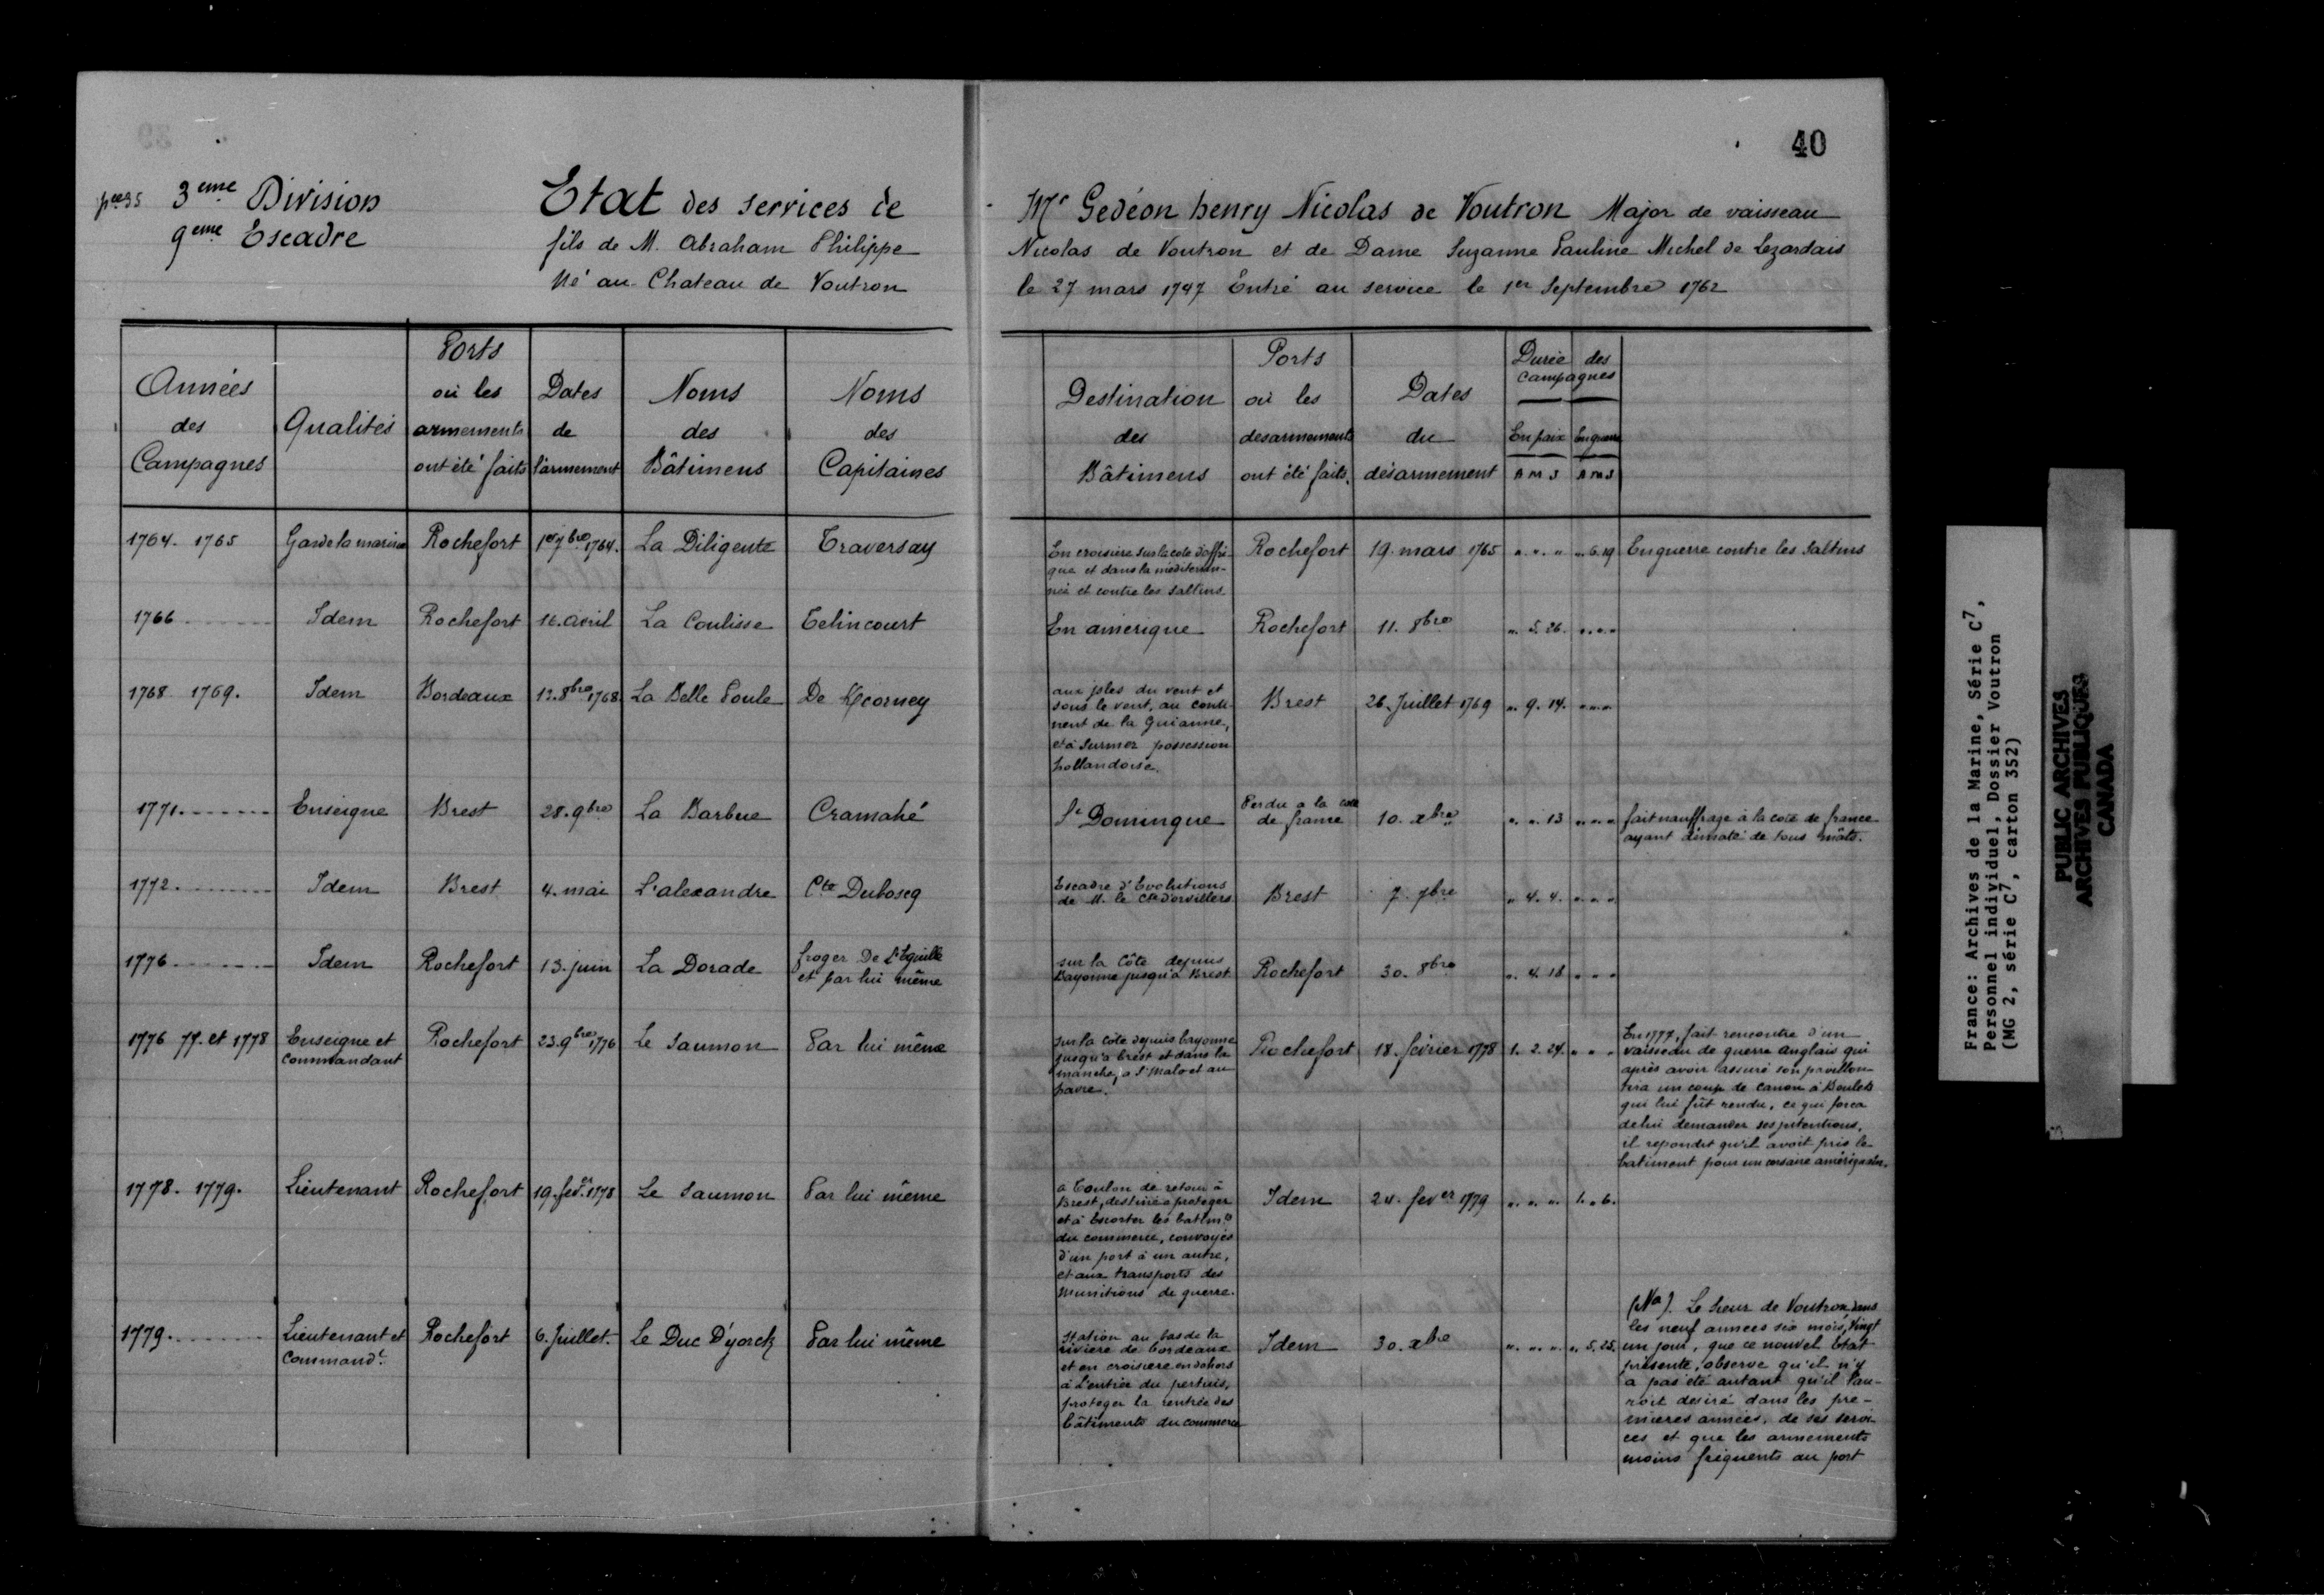 40
pce 35 3eme Division
9eme Escadre
Etat des services de Mr Gedéon henry Nicolas de Voutron Major de vaisseau
fils de M. Abraham Philippe Nicolas de Voutron et de Dame Suzanne Pauline Michel de Lezardais
Né au Chateau de Voutron le 27 mars 1747 Entré au service le 1er Septembre 1762
Années des Campagnes
Qualités
Ports où les armements ont été faits
Dates de l'armement
Noms des Bâtimens
Noms des Capitaines
Destination des Bâtimens
Ports où les desarmements ont été faits.
Dates du désarmement
Durée des campagnes
En paix En guerre
A M J A M J
1764. 1765 Garde la marine Rochefort 1er 7bre 1764. La Diligente Traversay
En croisière sur la cote d'affri-
que et dans la méditeran-
née et contre les Saltins
Rochefort 19. mars 1765 „ „ „ „ 6. 19 En guerre contre les Saltins
1766 Idem Rochefort 16. avril La Coulisse Telincourt
En amerique Rochefort 11. 8bre „ 5. 26. „ „ „
1768 1769. Idem Bordeaux 12. 8bre 1768 La Belle Poule De Kcorney
aux isles du vent et
sous le vent, au conti-
nent de la Guianne,
et à Surinor possession
hollandoise.
Brest 26. Juillet 1769 „ 9. 14. „ „ „
1771. Enseigne Brest 28. 9bre La Barbue Cramahé
St Domingue
Perdu a la cote
de france
10. xbre „ „ 13 „ „ „
fait nauffrage à la cote de france
ayant dématé de tous mâts.
1772. Idem Brest 4. mai L'alexandre Cte Duboscq
Escadre d'Evolutions
de M. le Cte d'orvillers
Brest 7. 7bre „ 4. 4. „ „ „
1776 Idem Rochefort 13. juin La Dorade
froger De L'Eguille
et par lui même
sur la Côte depuis
Bayonne jusqu'à Brest
Rochefort 30. 8bre „ 4. 18 „ „ „
1776 77. et 1778
Enseigne et
commandant
Rochefort 23. 9bre 1776 Le Saumon Par lui même
sur la côte depuis bayonne
jusqu'à brest et dans la
manche, a St Malo et au
havre.
Rochefort 18. février 1778 1. 2. 24. „ „ „
En 1777, fait rencontre d'un
vaisseau de guerre anglais qui
après avoir assuré son pavillon
tira un coup de canon à Boulets
qui lui fût rendu, ce qui forca
de lui demander ses intentions,
il repondit qu'il avoit pris le
batiment pour un corsaire amériquain.
1778. 1779. Lieutenant Rochefort 19. fevr 1778 Le Saumon Par lui même
a Toulon de retour à
Brest, destiné a proteger
et à Escorter les batimts
du commerce, convoyés
d'un port à un autre,
et aux transports des
munitions de guerre.
Idem 24. fever 1779 „ „ „ 1. „ 6.
1779.
Lieutenant et
Commandt
Rochefort 6. Juillet. Le Duc D'yorck Par lui même
Station au bas de la
riviere de bordeaux
et en croisiere en dehors
à L'entrée du pertuis,
proteger la rentrée des
bâtiments du commerce
Idem 30. xbre „ „ „ „ 5. 25.
(Na). Le Sieur de Voutron, dans
les neuf annees six mois, Vingt
un jour, que ce nouvel Etat
présente, observe qu'il n'y
a pas été autant qu'il l'au-
roit desiré dans les pre-
mieres années, de ses servi-
ces et que les armements
moins fréquents au port
France: Archives de la Marine, Série C7,
Personnel individuel, Dossier Voutron
(MG 2, série C7, carton 352)
PUBLIC ARCHIVES
ARCHIVES PUBLIQUES
CANADA